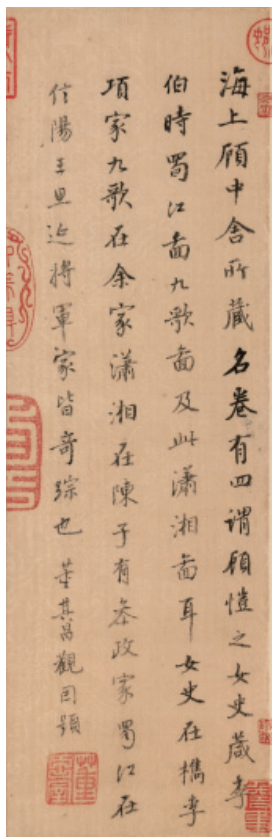 海上顧中舍所藏名卷有四謂顧愷之女史箴李
伯時蜀江圖九歌圖及此瀟湘圖耳女史在檇李
項家九歌在余家瀟湘在陳子有參政家蜀江在
信陽王思延將軍家皆奇踪也 董其昌觀因題